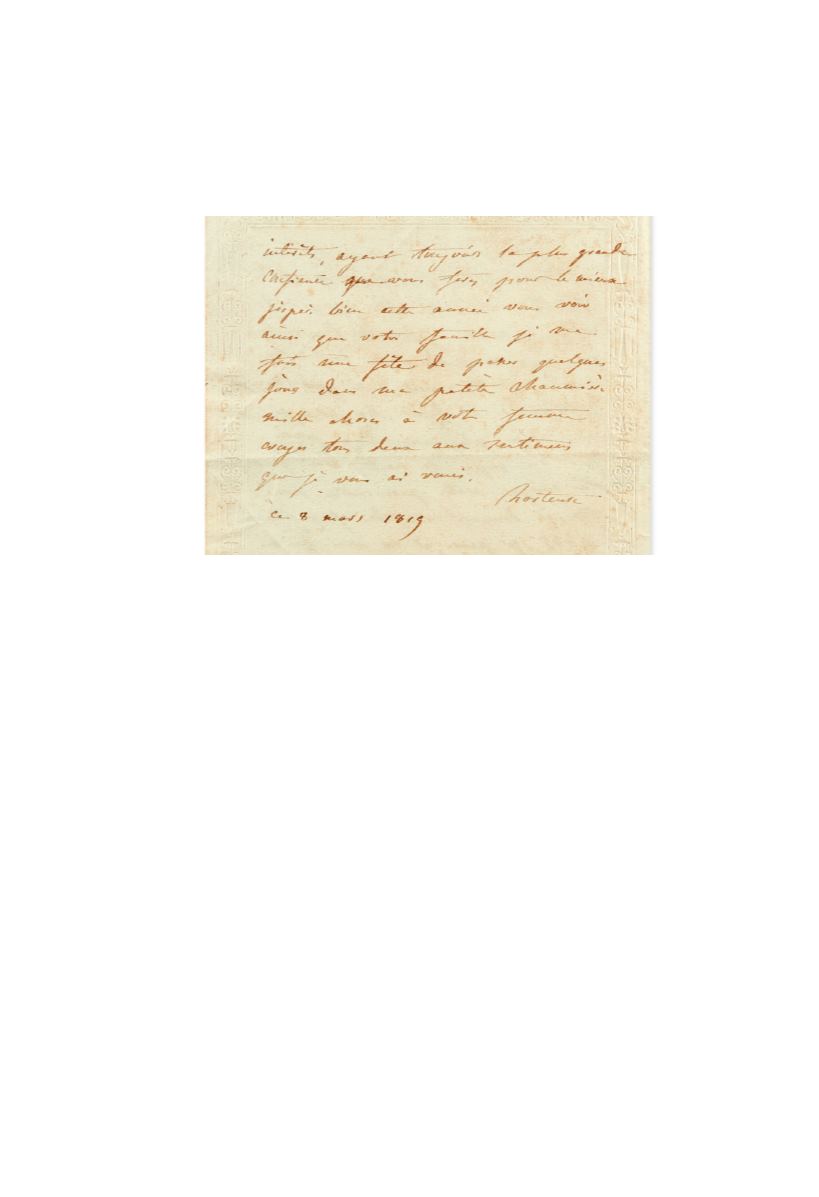 intérêts, ayant toujours la plus grande
confiance que vous ferez pour le mieux
j'espère bien cette année vous voir
ainsi que votre famille je me
fais une fête de passer quelques
jours dans ma petite chaumière
mille choses à votre femme
croyez tous deux aux sentimens
que je vous ai voués.
hortense
ce 8 mars 1819